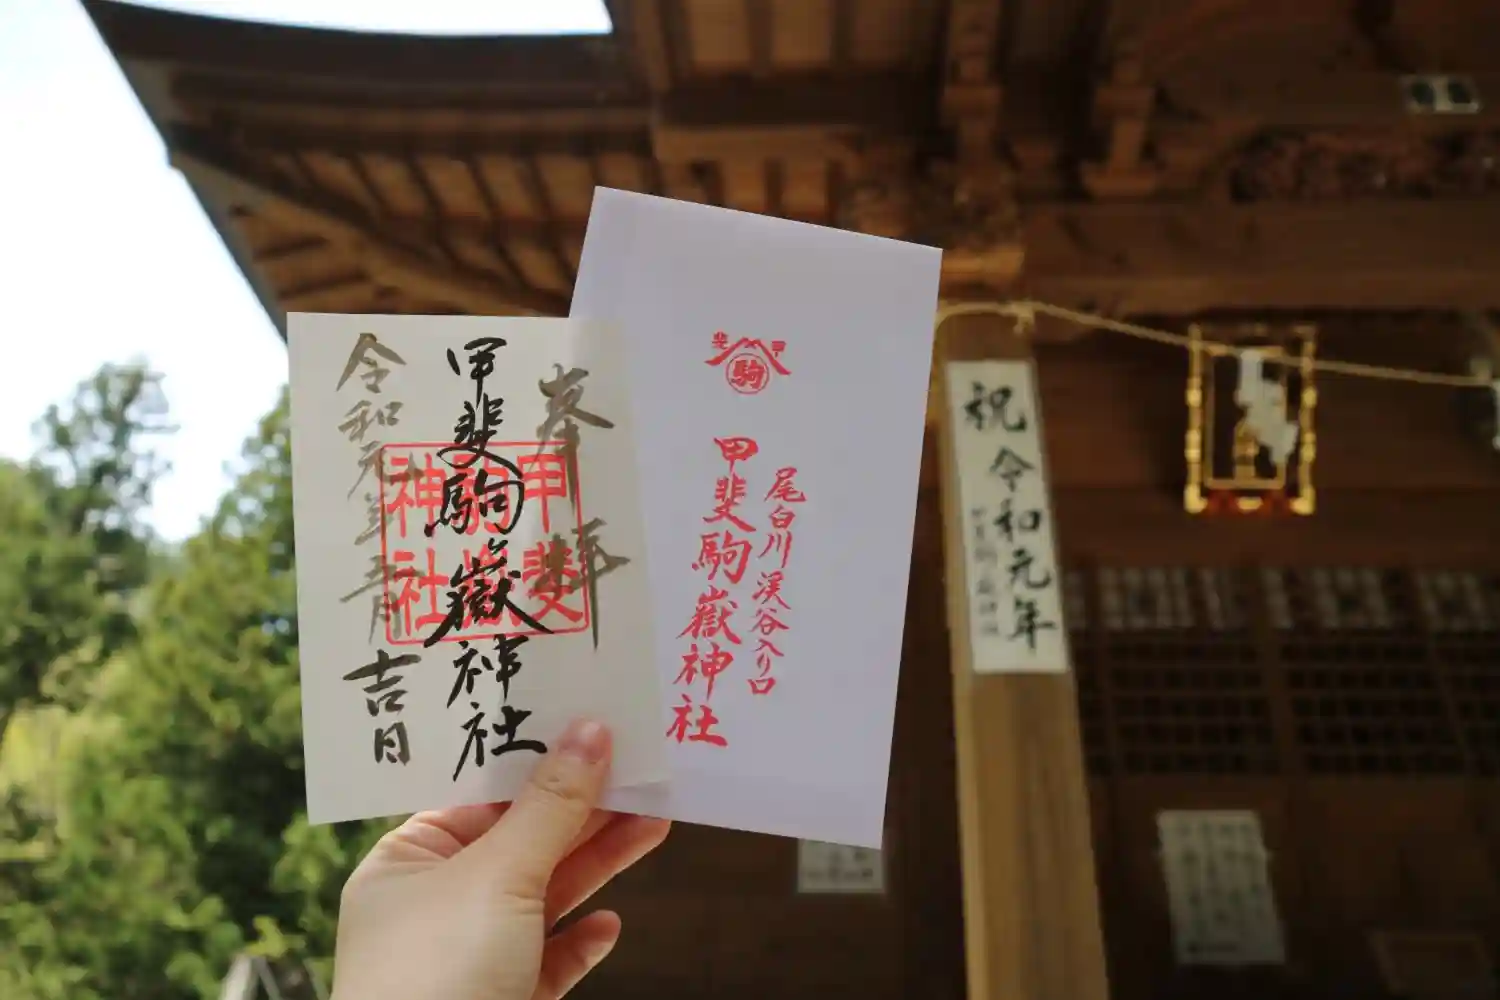 奉拝
甲斐駒嶽神社
令和元年五月
吉日
甲斐
駒嶽
神社
斐 甲
駒
尾白川渓谷入り口
甲斐駒嶽神社
祝令和元年